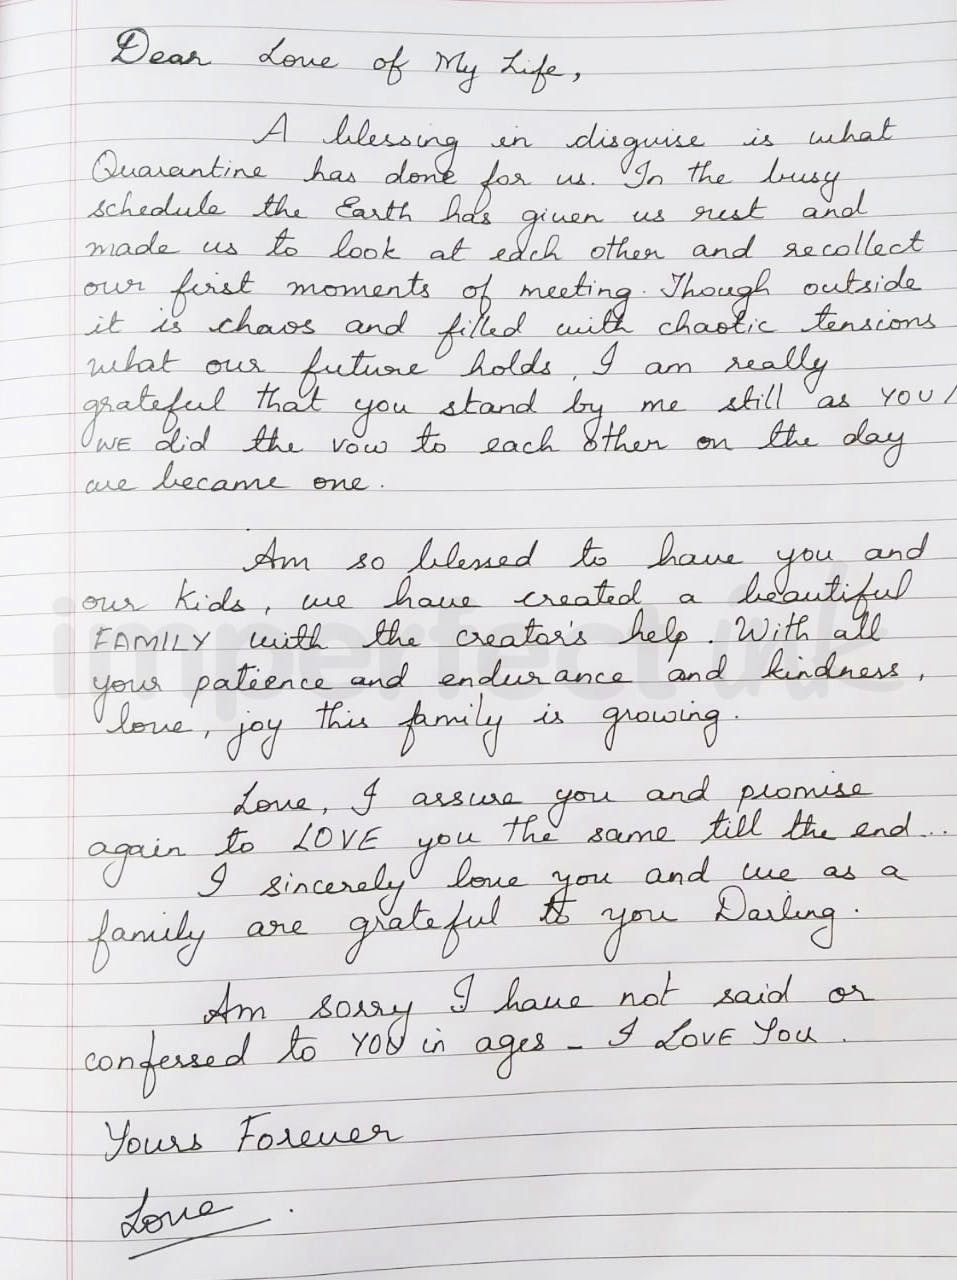 Dear Love of My Life,
A blessing in disguise is what
Quarantine has done for us. In the busy
schedule the Earth has given us rest and
made us to look at each other and recollect
our first moments of meeting. Though outside
it is chaos and filled with chaotic tensions
what our future holds, I am really
grateful that you stand by me still as YOU/
WE did the vow to each other on the day
we became one.
Am so blessed to have you and
our kids, we have created a beautiful
FAMILY with the creator's help. With all
your patience and endurance and kindness,
love, joy this family is growing.
Love, I assure you and promise
again to LOVE you the same till the end...
I sincerely love you and we as a
family are grateful to you Darling.
Am sorry I have not said or
confessed to YOU in ages - I LOVE You.
Yours Forever
Love.
imperfect ink